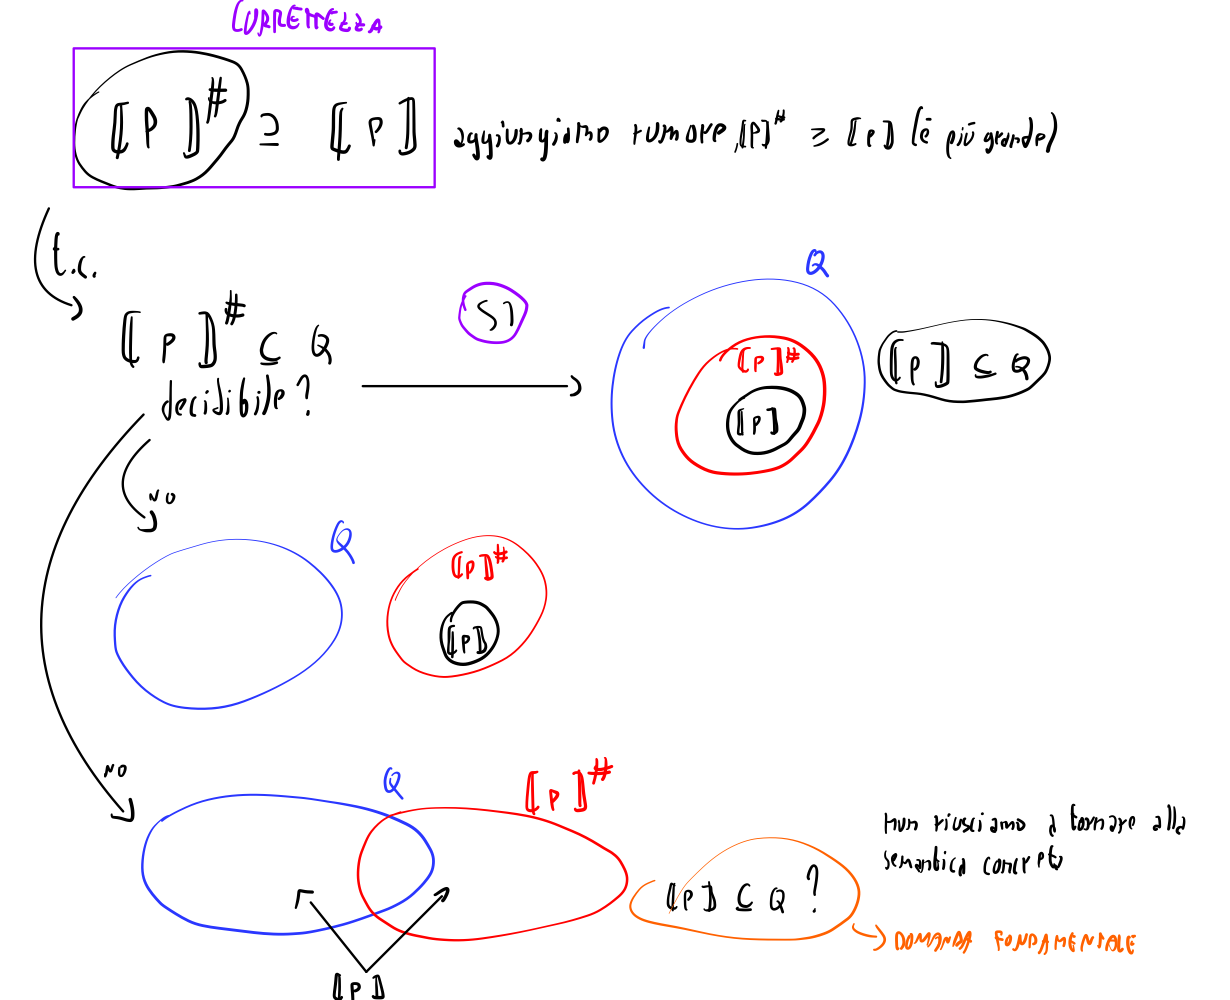 CORRETTEZZA
⟦P⟧# ⊇ ⟦P⟧ aggiungiamo rumore, ⟦P⟧# ≥ ⟦P⟧ (è più grande)
t.c.
⟦P⟧# ⊆ Q
decidibile?
SI
Q
⟦P⟧#
⟦P⟧
⟦P⟧ ⊆ Q
NO
Q
⟦P⟧#
⟦P⟧
NO
Q
⟦P⟧#
non riusciamo a tornare alla
semantica concreta
⟦P⟧ ⊆ Q ?
DOMANDA FONDAMENTALE
⟦P⟧